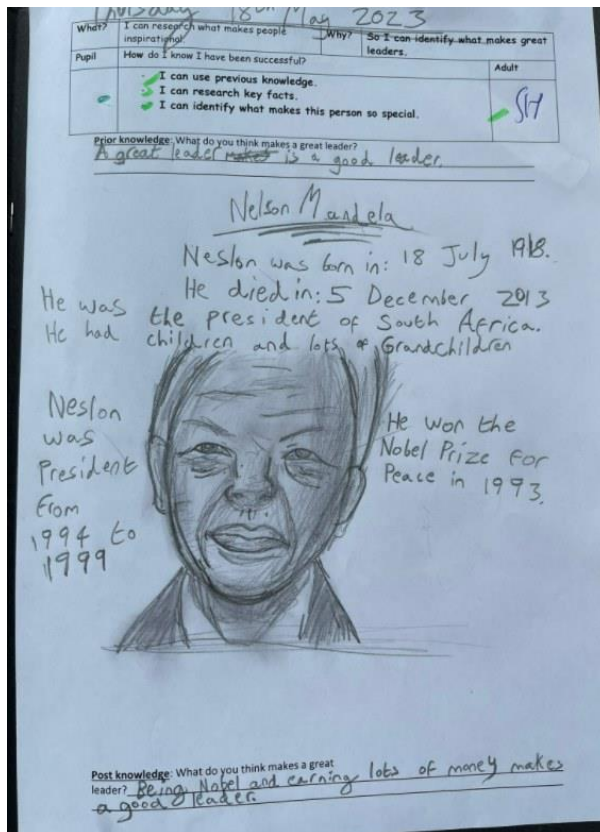 Thursday 18th May 2023
What? I can research what makes people inspirational. Why? So I can identify what makes great leaders.
Pupil How do I know I have been successful? Adult
I can use previous knowledge.
I can research key facts.
I can identify what makes this person so special.
SH
Prior knowledge: What do you think makes a great leader?
A great leader makes is a good leader.
Nelson Mandela
Neslon was born in: 18 July 1918.
He died in: 5 December 2013
He was the president of South Africa.
He had children and lots of Grandchildren
Neslon
was
President
from
1994 to
1999
He won the
Nobel Prize for
Peace in 1993.
Post knowledge: What do you think makes a great
leader? Being Nobel and earning lots of money makes
a good leader.